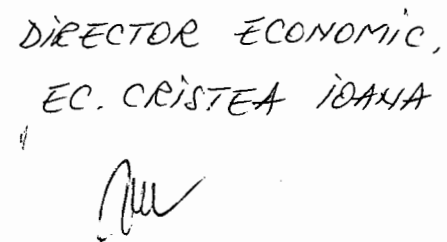 DIRECTOR ECONOMIC,
EC. CRISTEA IOANA